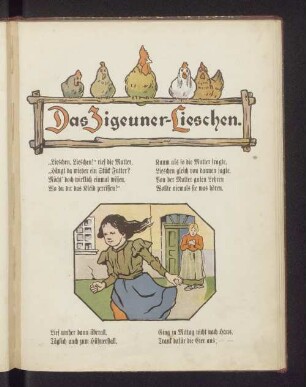 Das Zigeuner-Lieschen.
„Lieschen, Lieschen!“ rief die Mutter,
„Hängt da wieder ein Stück Futter?
Möcht' doch wirklich einmal wissen,
Wo du dir das Kleid zerrissen!“
Kaum als so die Mutter fragte,
Lieschen gleich von dannen jagte.
Von der Mutter guten Lehren
Wollte niemals sie was hören.
Lief umher dann überall,
Täglich auch zum Hühnerstall.
Ging zu Mittag nicht nach Haus,
Trank dafür die Eier aus.